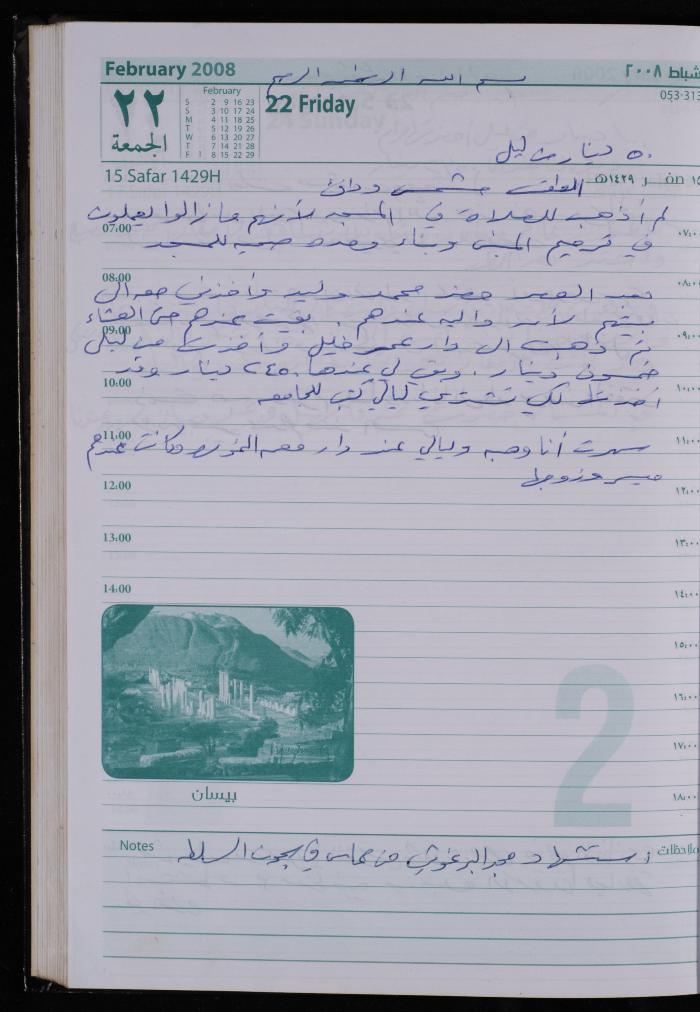 February 2008
شباط ٢٠٠٨
بسم الله الرحمن الرحيم
22 Friday
٢٢
الجمعة
February
S 2 9 16 23
S 3 10 17 24
M 4 11 18 25
T 5 12 19 26
W 6 13 20 27
T 7 14 21 28
F 1 8 15 22 29
053-313
٥٠ دينار من ليلى
15 Safar 1429H
١٥ صفر ١٤٢٩هـ
الطقس مشمس ودافئ
لم أذهب للصلاة في المسجد لأنهم ما زالوا يعملون
07:00
٠٧:٠٠
في ترميم المبنى وبناء للمسجد
08:00
٠٨:٠٠
بعد العصر حضر محمد وليد وأخذني معه الى
بيتهم عندهم. بقيت عندهم حتى العشاء
09:00
٠٩:٠٠
ثم ذهبت الى دار وأخذت من ليلى
خمسون دينار. وبقي لي عندها ٢٤٥٠ دينار وقد
10:00
١٠:٠٠
أخذتها لكي تشتري ليالي كتب للجامعة
11:00
١١:٠٠
سهرت أنا وليالي عند دار وكانت عندهم
12:00
١٢:٠٠
وزوجها
13:00
١٣:٠٠
14:00
١٤:٠٠
١٥:٠٠
١٦:٠٠
١٧:٠٠
١٨:٠٠
2
بيسان
Notes
ملاحظات
استشهاد مجد البرغوثي من حماس في سجون السلطة